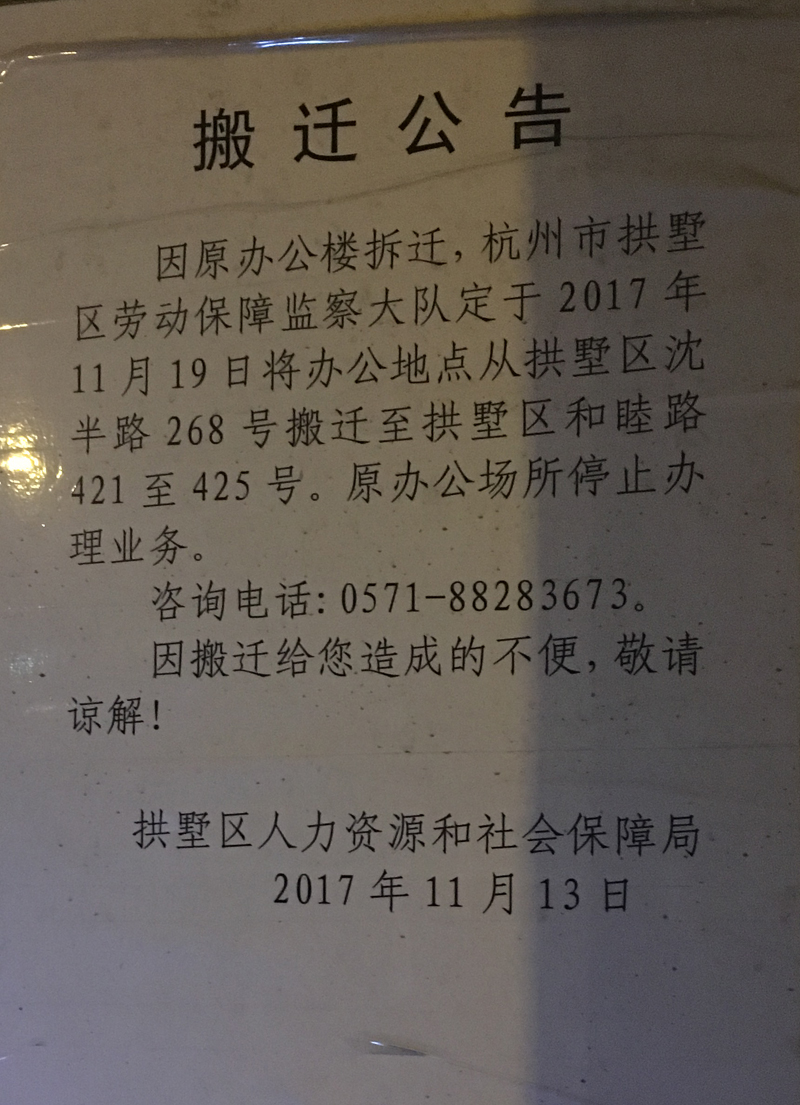 搬迁公告
因原办公楼拆迁，杭州市拱墅
区劳动保障监察大队定于 2017 年
11 月 19 日将办公地点从拱墅区沈
半路 268 号搬迁至拱墅区和睦路
421 至 425 号。原办公场所停止办
理业务。
咨询电话：0571-88283673。
因搬迁给您造成的不便，敬请
谅解！
拱墅区人力资源和社会保障局
2017 年 11 月 13 日